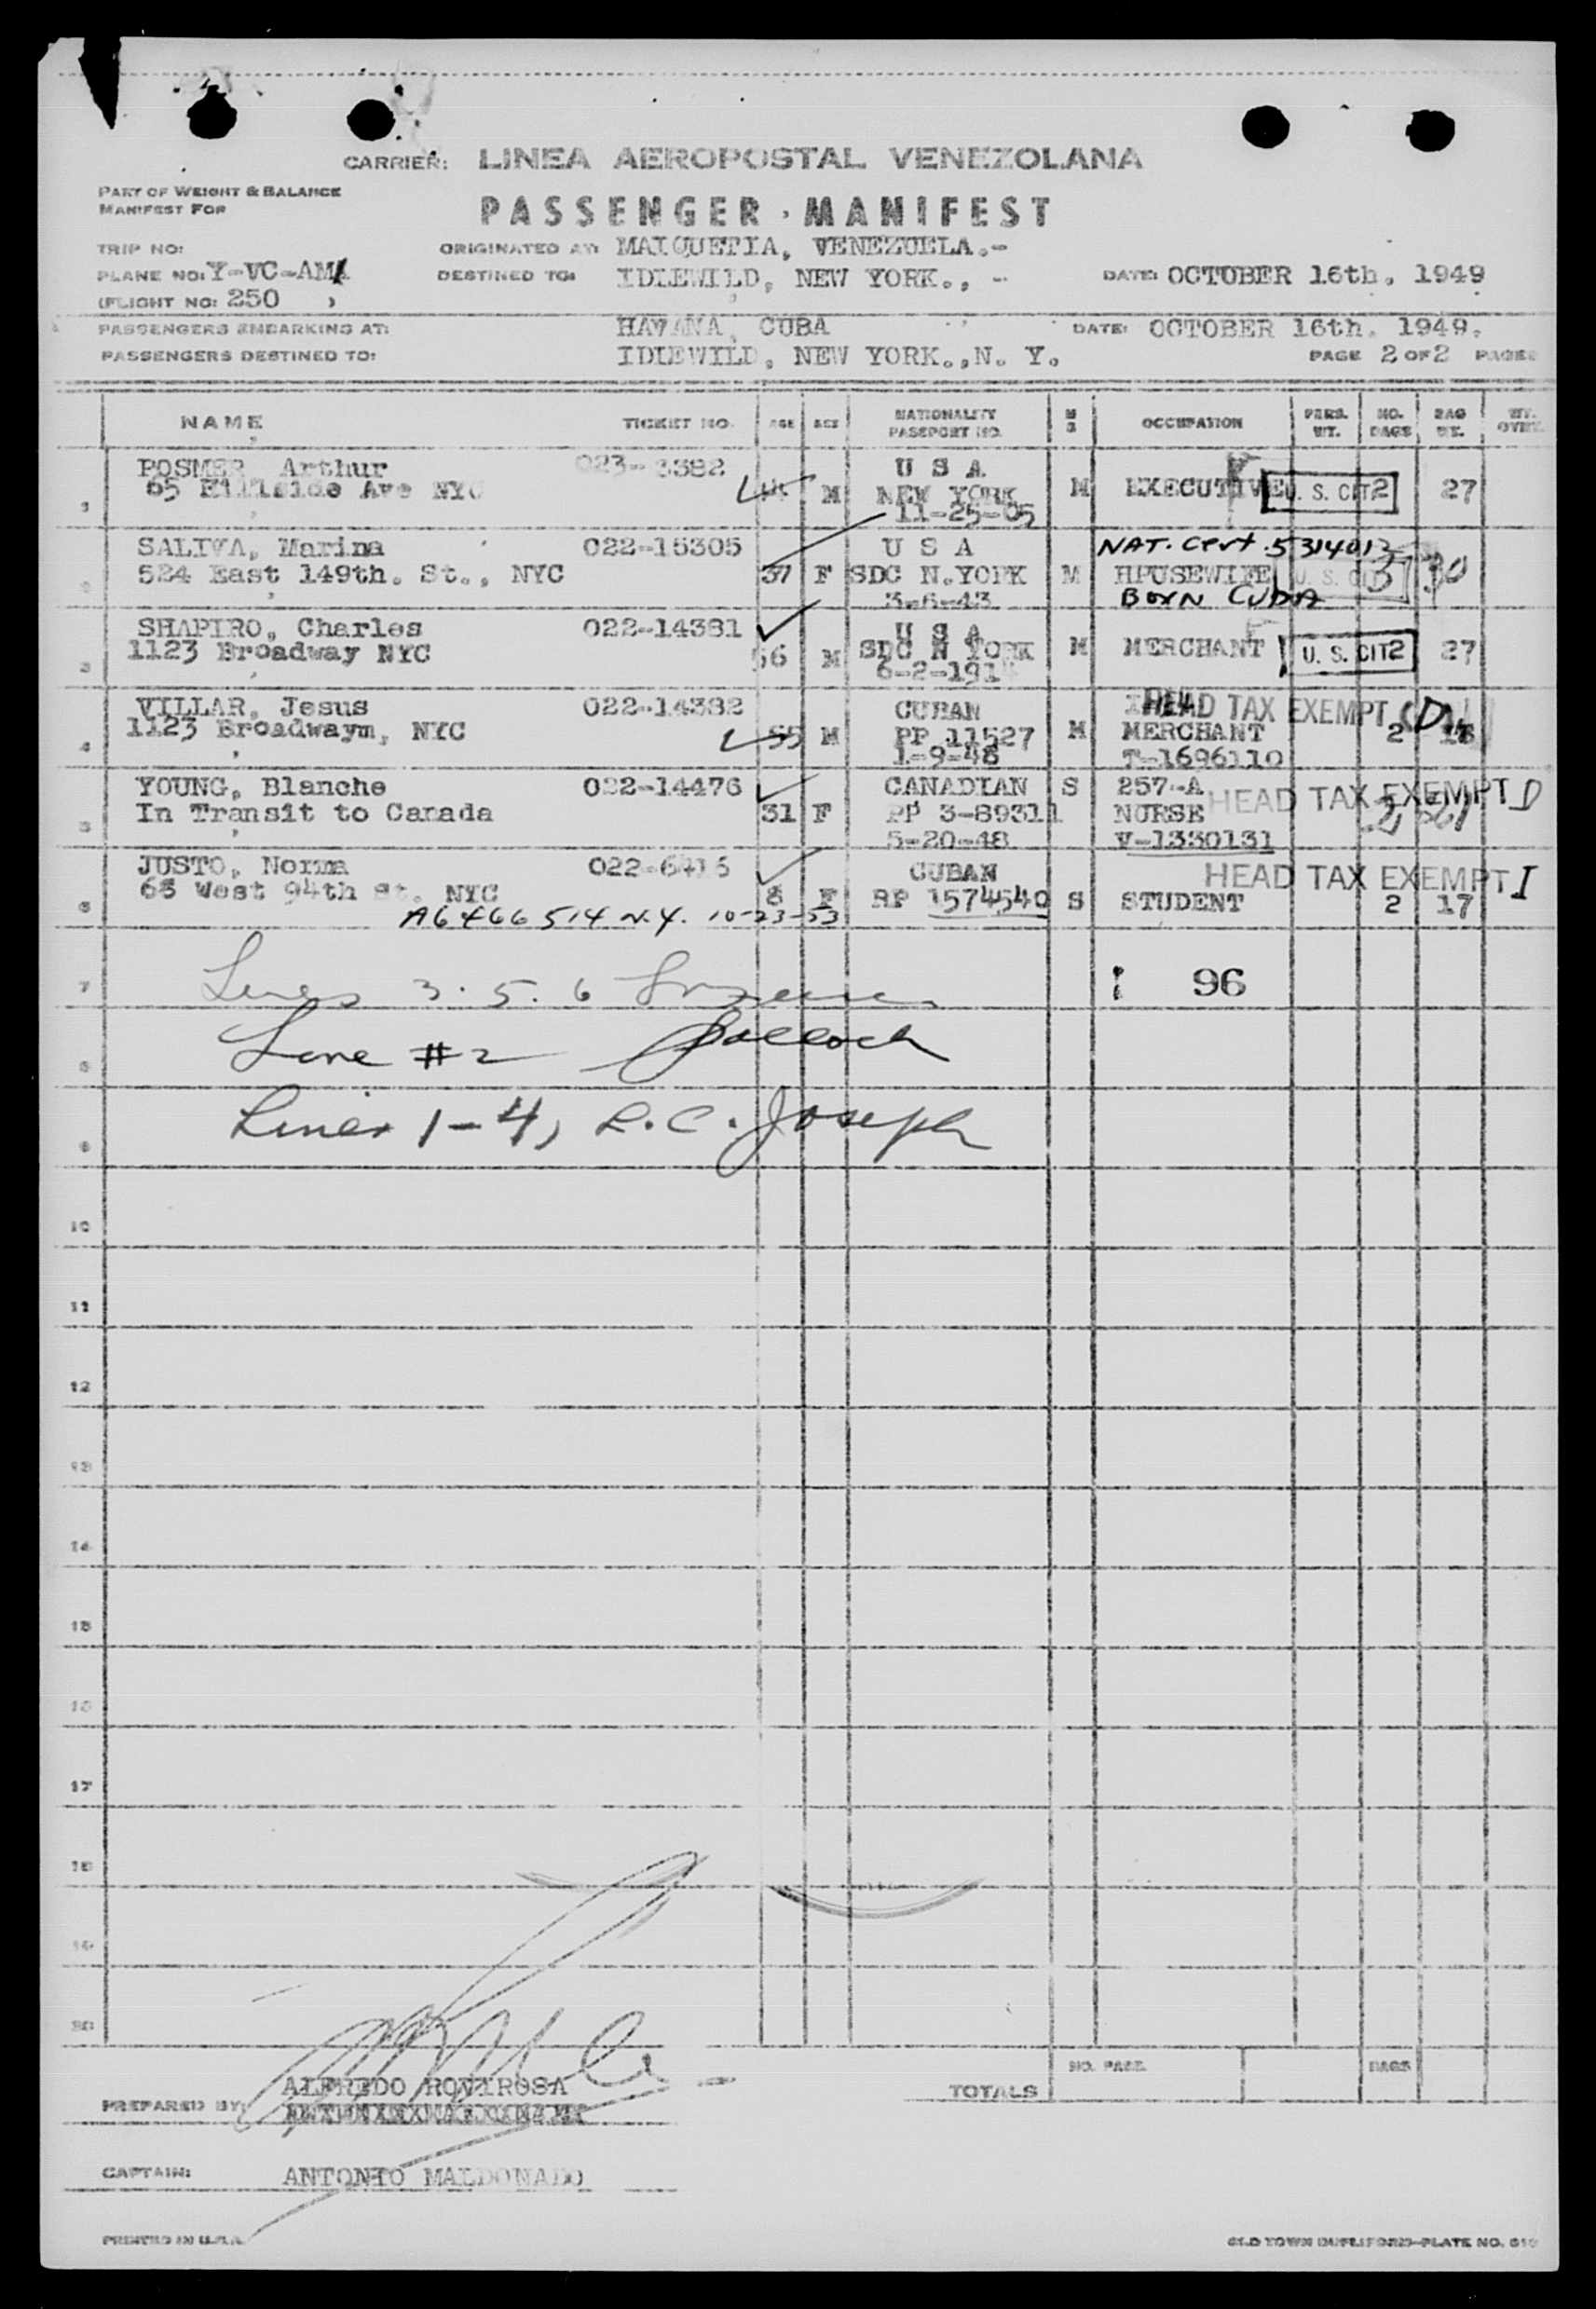 CARRIER: LINEA AEROPOSTAL VENEZOLANA
PART OF WEIGHT & BALANCE
MANIFEST FOR
PASSENGER MANIFEST
TRIP NO:
ORIGINATED AT: MAIQUETIA, VENEZUELA.-
PLANE NO: Y-VC-AMA
DESTINED TO: IDLEWILD, NEW YORK., -
DATE: OCTOBER 16th, 1949
(FLIGHT NO: 250 )
PASSENGERS EMBARKING AT: HAVANA, CUBA
DATE: OCTOBER 16th. 1949.
PASSENGERS DESTINED TO: IDLEWILD, NEW YORK.,N. Y.
PAGE 2 OF 2 PAGES
NAME TICKET NO. AGE SEX NATIONALITY PASSPORT NO. M S OCCUPATION PERS. WT. NO. BAGS BAG WT.
1 POSMER, Arthur 023- 3382 U S A
65 Hillside Ave NYC M NEW YORK M EXECUTIVE U. S. CIT 2 27
11-25-05
2 SALIVA, Marina 022-15305 U S A NAT. Cert. 5314012
524 East 149th. St., NYC 37 F SDC N.YORK M HPUSEWIFE U. S. CIT 3 30
3-6-43 BORN CUBA
3 SHAPIRO, Charles 022-14381 U S A
1123 Broadway NYC 56 M SDC N YORK M MERCHANT U. S. CIT 2 27
6-2-191
4 VILLAR, Jesus 022-14382 CUBAN HEAD TAX EXEMPT (D)
1123 Broadwaym, NYC 55 M PP 11527 M MERCHANT 2
1-9-48 T-1696110
5 YOUNG, Blanche 022-14476 CANADIAN S 257-A HEAD TAX EXEMPT D
In Transit to Canada 31 F PP 3-89311 NURSE
5-20-48 V-1330131
6 JUSTO, Norma 022-6415 CUBAN HEAD TAX EXEMPT I
65 West 94th St. NYC 8 F RP 1574540 S STUDENT 2 17
A6466514 N.Y. 10-23-53
7 Lines 3. 5. 6
96
8 Line #2
9 Lines 1-4, R.C. Joseph
10
11
12
13
14
15
16
17
18
19
20
NO. PASS. BAGS
TOTALS
ALFREDO ROVIROSA
PREPARED BY:
CAPTAIN: ANTONIO MALDONADO
PRINTED IN U.S.A.
OLD TOWN DUPLIFORM-PLATE NO.